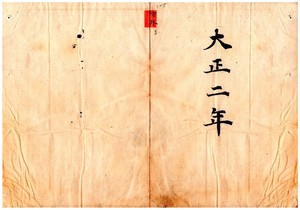 大正二年